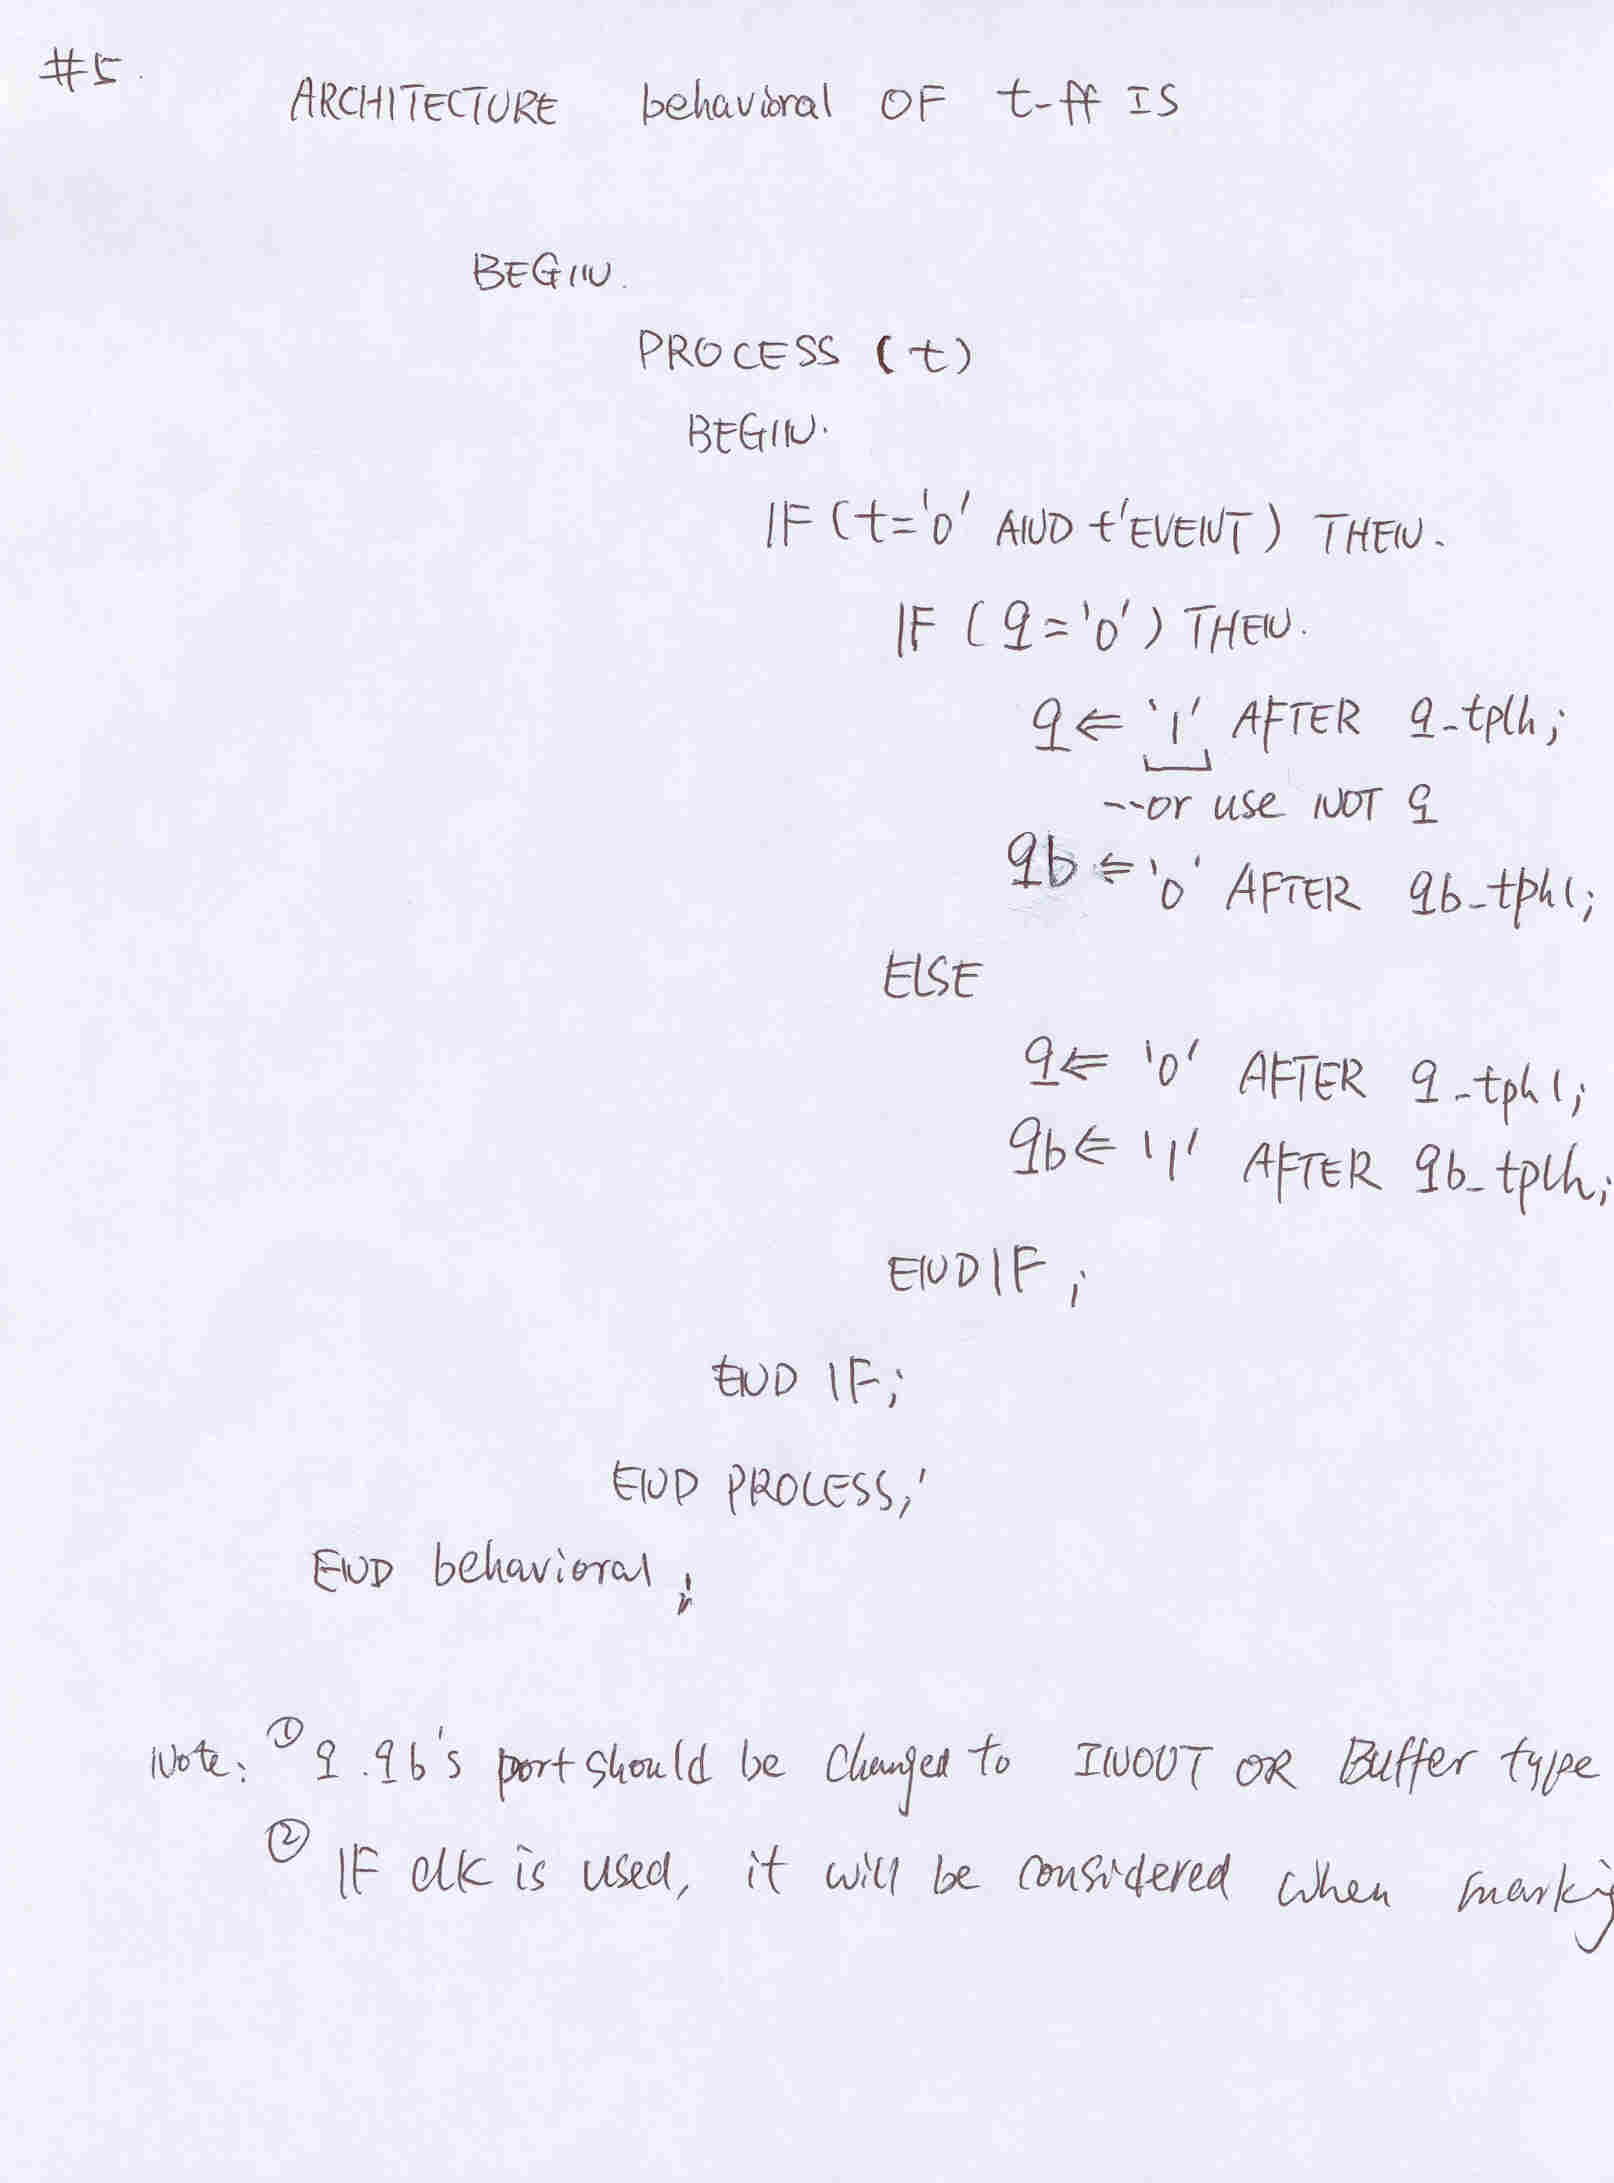 #5.
ARCHITECTURE behavioral OF t-ff IS
BEGIN.
PROCESS (t)
BEGIN.
IF (t='0' AND t'EVENT) THEN.
IF (q='0') THEN.
q <= '1' AFTER q-tplh;
--or use NOT q
qb <= '0' AFTER qb-tphl;
ELSE
q <= '0' AFTER q-tphl;
qb <= '1' AFTER qb-tplh;
ENDIF;
END IF;
END PROCESS;
END behavioral;
Note: ① q.qb's port should be changed to INOUT OR Buffer type
② IF clk is used, it will be considered when marking